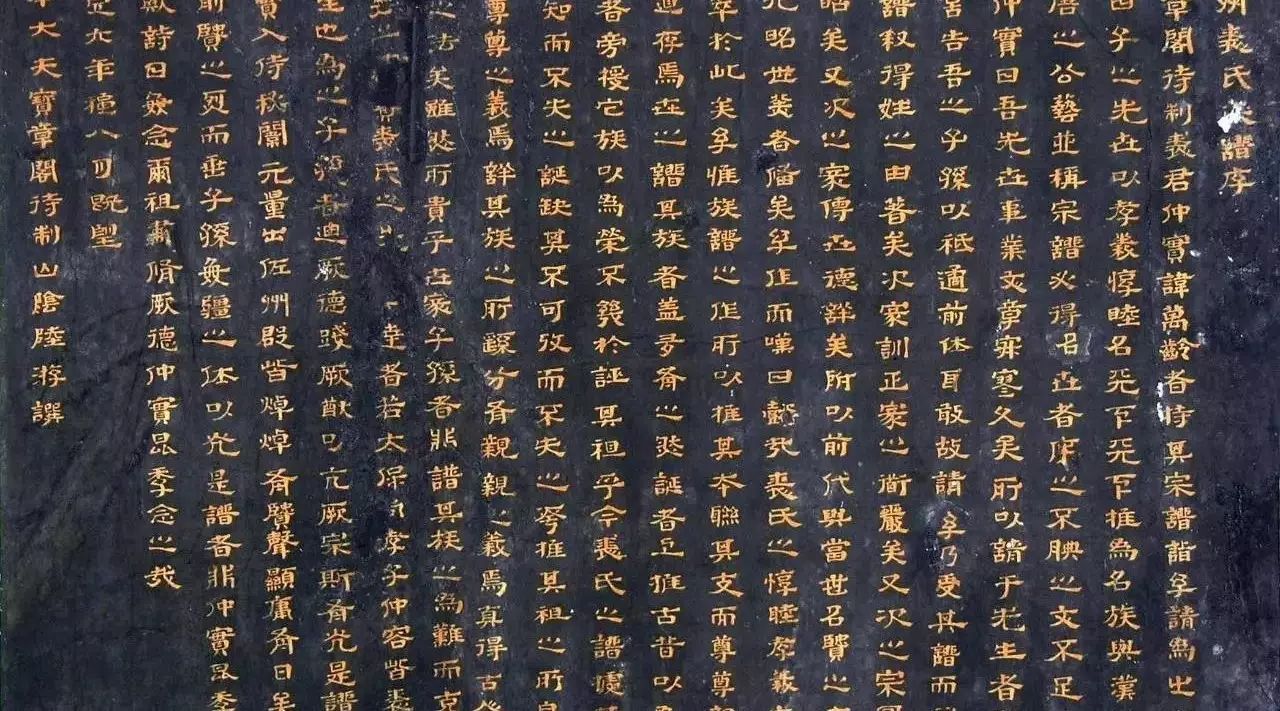 州裘氏家譜序
章閣待制裘君仲實諱萬齡者時具宗譜詣予請為之
予之先世以孝義惇睦名天下天下推為名族與
唐之公藝並稱宗譜必得名世者序之不腆之文不足
仲實曰吾先世事業文章寂寥久矣所以請于先生者
告吾之子孫以祗遹前休耳敢故請予乃受其譜而
譜敘得姓之由著矣次家訓正家之術嚴矣又次之宗圖
昭矣又次之家傳世德詳矣所以前代與當世名賢之
先昭世美者備矣予作而嘆曰懿哉裘氏之惇睦孝義
萃於此矣予惟族譜之作所以推其本聯其支而尊尊
道存焉世之譜其族者蓋多有之然誕者上推古昔以
者旁援它族以為榮不幾於誣其祖乎今裘氏之譜
知而不失之誕缺其不可攷而不失之夸推其祖之所自
尊尊之義焉詳其族之所繇分有親親之義焉真得古
之法矣雖然所貴乎世家子孫者非譜其族之為難而克
裘氏之先 者若太保 孝子仲容皆
生也為之子孫者迪厥德踐厥猷可亢厥宗斯有光是譜
實入侍秘閣元量出佐州郡皆焯焯有賢聲顯庸有日
前賢之烈而垂子孫無疆之休以光是譜者非仲實昆季
獻詩曰無念爾祖聿脩厥德仲實昆季念之哉
九年穐八月既望
大夫寶章閣待制山陰陸游譔